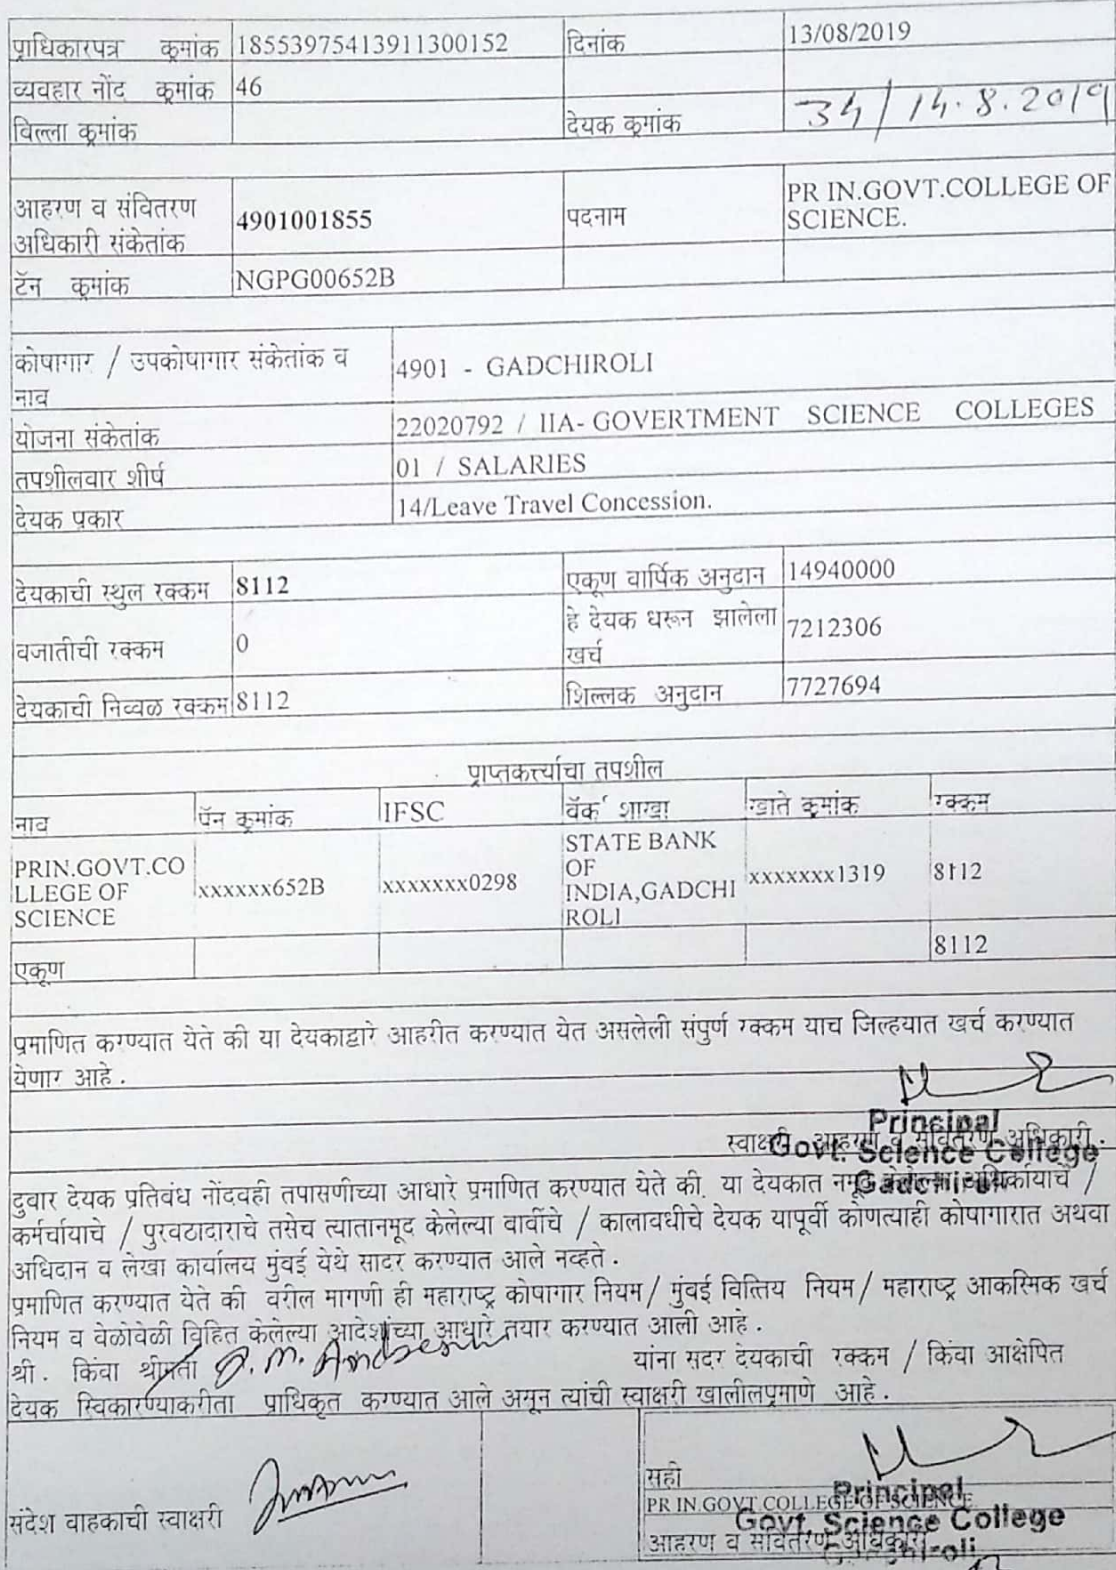 प्राधिकारपत्र क्रमांक 18553975413911300152 दिनांक 13/08/2019
व्यवहार नोंद क्रमांक 46
बिल्ला क्रमांक देयक क्रमांक 34/14.8.2019
आहरण व संवितरण अधिकारी संकेतांक 4901001855 पदनाम PR IN.GOVT.COLLEGE OF SCIENCE.
टॅन क्रमांक NGPG00652B
कोषागार / उपकोषागार संकेतांक व नाव 4901 - GADCHIROLI
योजना संकेतांक 22020792 / IIA- GOVERTMENT SCIENCE COLLEGES
तपशीलवार शीर्ष 01 / SALARIES
देयक प्रकार 14/Leave Travel Concession.
देयकाची स्थुल रक्कम 8112 एकूण वार्षिक अनुदान 14940000
वजातीची रक्कम 0 हे देयक धरून झालेला खर्च 7212306
देयकाची निव्वळ रक्कम 8112 शिल्लक अनुदान 7727694
प्राप्तकर्त्याचा तपशील
नाव पॅन क्रमांक IFSC बॅक शाखा खाते क्रमांक रक्कम
PRIN.GOVT.CO
LLEGE OF
SCIENCE xxxxxx652B xxxxxxx0298 STATE BANK
OF
INDIA,GADCHI
ROLI xxxxxxx1319 8112
एकूण 8112
प्रमाणित करण्यात येते की या देयकाद्वारे आहरीत करण्यात येत असलेली संपुर्ण रक्कम याच जिल्हयात खर्च करण्यात
येणार आहे.
स्वाक्षरी आहरण व संवितरण अधिकारी.
Principal
Govt. Science College
Gadchiroli
दुवार देयक प्रतिबंध नोंदवही तपासणीच्या आधारे प्रमाणित करण्यात येते की. या देयकात नमूद केलेल्या अधिकार्याचे /
कर्मचार्याचे / पुरवठादाराचे तसेच त्यातानमूद केलेल्या बाबींचे / कालावधीचे देयक यापूर्वी कोणत्याही कोषागारात अथवा
अधिदान व लेखा कार्यालय मुंबई येथे सादर करण्यात आले नव्हते.
प्रमाणित करण्यात येते की वरील मागणी ही महाराष्ट्र कोषागार नियम/ मुंबई वित्तिय नियम/ महाराष्ट्र आकस्मिक खर्च
नियम व वेळोवेळी विहित केलेल्या आदेशांच्या आधारे तयार करण्यात आली आहे.
श्री. किंवा श्रीमती यांना सदर देयकाची रक्कम / किंवा आक्षेपित
देयक स्विकारण्याकरीता प्राधिकृत करण्यात आले असून त्यांची स्वाक्षरी खालीलप्रमाणे आहे.
संदेश वाहकाची स्वाक्षरी
सही
PR IN.GOVT.COLLEGE OF SCIENCE
आहरण व संवितरण अधिकारी
Principal
Govt. Science College
Gadchiroli